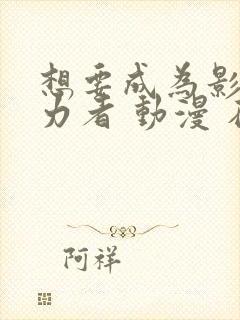 想要成為影
力者 動漫
阿祥